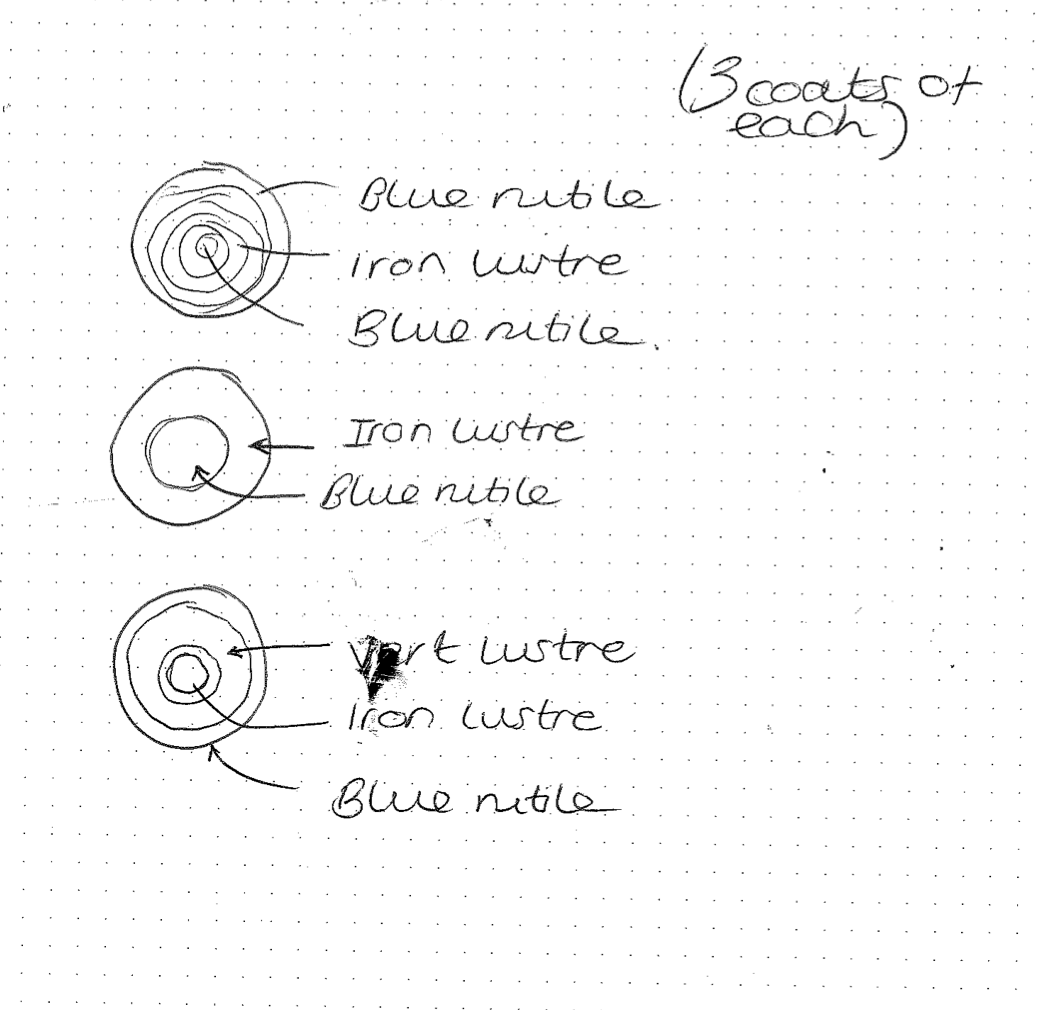 (3 coats of
each)
Blue rutile
iron lustre
Blue rutile.
Iron lustre
Blue rutile
Vert lustre
iron lustre
Blue rutile